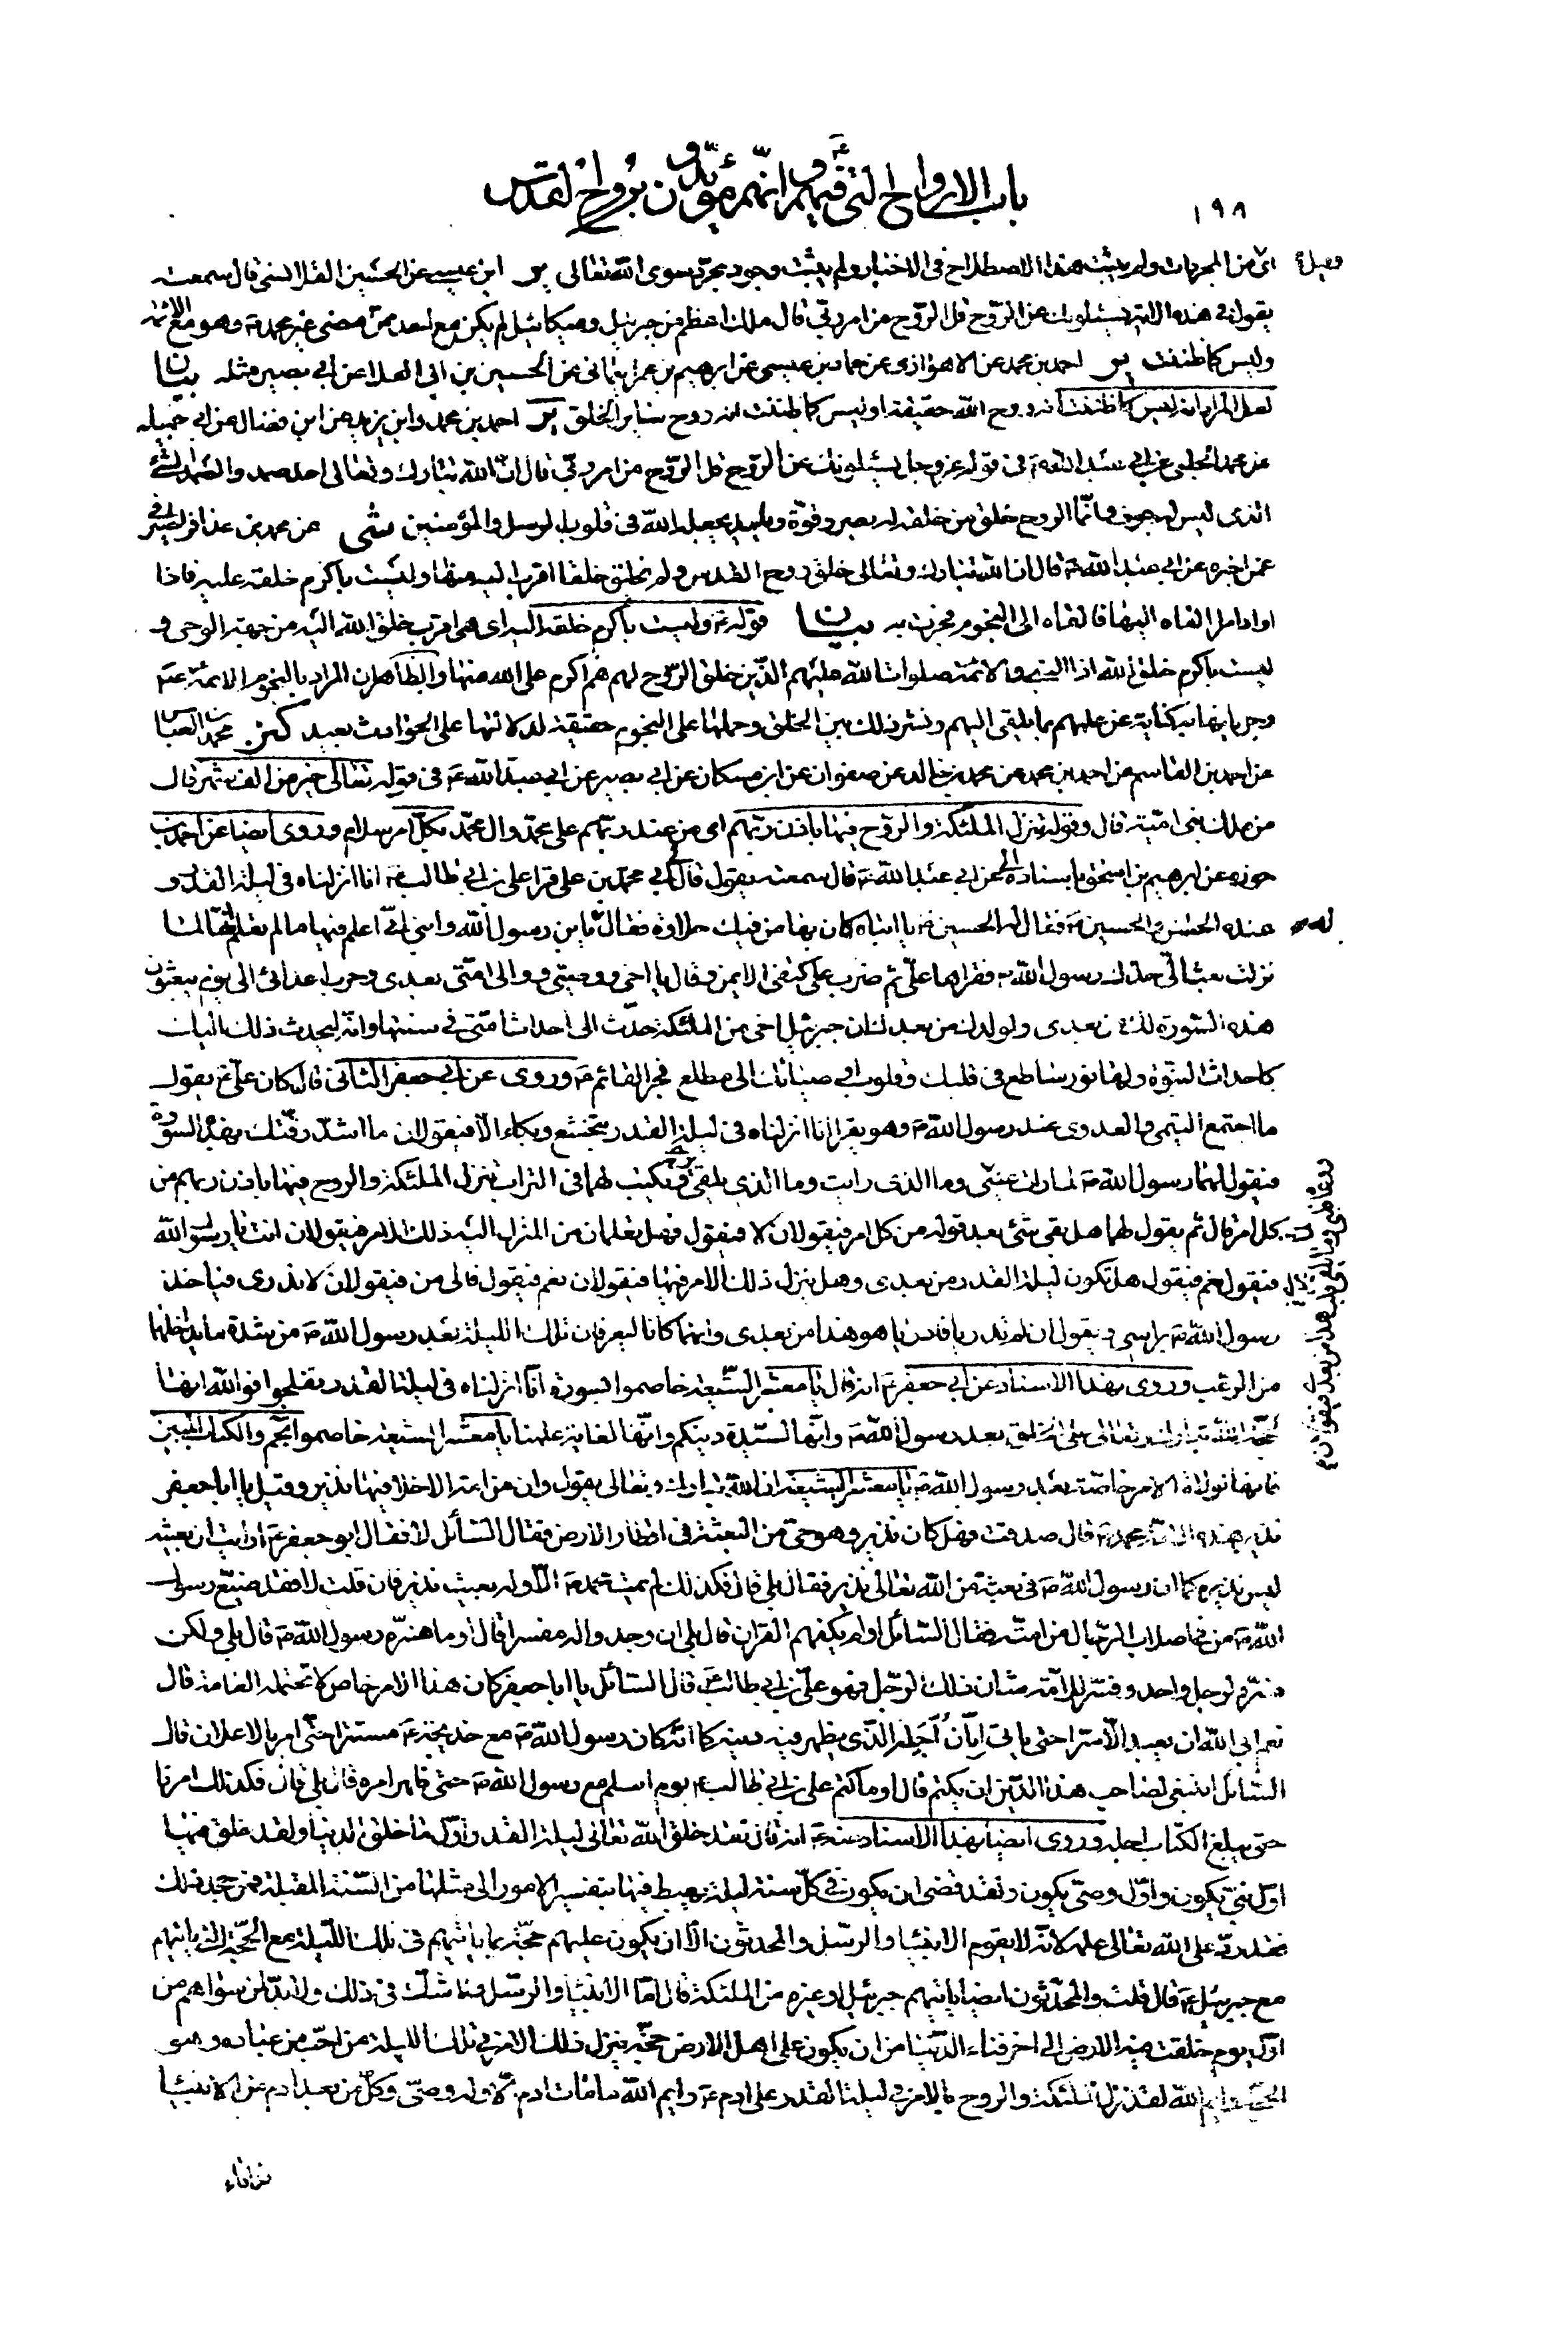 ١٩٨
باب الارواح التي فيهم وانهم مؤيدون بروح القدس
اى من المجردات ولم يثبت هذا الاصطلاح فى الاخبار ولم يثبت وجود مجرد سوى الله تعالى ير ابن عيسى عن الحسين القلانسى قال سمعته
يقول فى هذه الاية يسئلونك عن الروح قل الروح من امر ربى قال ملك اعظم من جبرئيل وميكائيل لم يكن مع احد ممن مضى غير محمد ص وهو مع الائمة
وليس كما ظننت ير احمد بن محمد عن الاهوازى عن حماد بن عيسى عن ابرهيم بن عمر اليمانى عن الحسين بن ابى العلا عن ابى بصير مثله بيان
لعل المراد انه ليس كما ظننت انه روح الله حقيقة او ليس كما ظننت انه روح سائر الخلق ير احمد بن محمد وابن يزيد عن ابن فضال عن ابى جميله
عن محمد الحلبى عن ابى عبد الله ع فى قوله عز وجل يسئلونك عن الروح قل الروح من امر ربى قال ان الله تبارك وتعالى احد صمد والصمد الشئ
الذى ليس له جوف وانما الروح خلق من خلقه له بصر وقوة وتاييد يجعله الله فى قلوب الرسل والمؤمنين شى عن محمد بن عذافر الصيرفى
عمن اخبره عن ابى عبد الله ع قال ان الله تبارك وتعالى خلق روح القدس ولم يخلق خلقا اقرب اليه منها وليست باكرم خلقه عليه فاذا
اراد امرا القاه اليها فالقاه الى النجوم فجرت به بيان قوله ع وليست باكرم خلقه اليه اى هى اقرب خلق الله اليه من جهة الوحى و
ليست باكرم خلق الله اذ النبى والائمة صلوات الله عليهم الذين خلق الروح لهم هم اكرم على الله منها والظاهر ان المراد بالنجوم الائمة ع
وجريانها به كناية عن علمهم بما يلقى اليهم ونشر ذلك بين الخلق وحملها على النجوم حقيقة لدلالتها على الحوادث بعيد كنز محمد بن العباس
عن احمد بن القاسم عن احمد بن محمد عن محمد بن خالد عن صفوان عن ابن مسكان عن ابى بصير عن ابى عبد الله ع فى قوله تعالى خير من الف شهر قال
من ملك بنى امية قال وقوله تنزل الملئكة والروح فيها باذن ربهم اى من عند ربهم على محمد وال محمد بكل امر سلام وروى ايضا عن احمد بن
هوذه عن ابرهيم بن اسحق باسناده عن ابى عبد الله ع قال سمعته يقول قال لى ابى محمد بن على قرا على بن ابى طالب ع انا انزلناه فى ليلة القدر و
عنده الحسن والحسين ع فقال له الحسين ع يا ابتاه كان بها من فيك حلاوة فقال له يا بن رسول الله وابنى انى اعلم فيها ما لم تعلم انها لما
نزلت بعث الى جدك رسول الله ص فقراها على ثم ضرب على كتفى الايمن وقال يا اخى ووصيى ووالى امتى بعدى وحرب اعدائى الى يوم يبعثون
هذه السورة لك من بعدى ولولدك من بعدك ان جبرئيل اخى من الملئكة حدث الى احداث امتى فى سنتها وانه ليحدث ذلك اليك
كاحداث النبوة ولها نور ساطع فى قلبك وقلوب اوصيائك الى مطلع فجر القائم ع وروى عن ابى جعفر الثانى قال كان على ع يقول
ما اجتمع التيمى والعدوى عند رسول الله ص وهو يقرا انا انزلناه فى ليلة القدر بتخشع وبكاء الا فيقولان ما اشد رقتك بهذه السورة
فيقول لهما رسول الله ص لما رات عينى وما الذى رايت وما الذى يلقى فيكتب لهما فى التراب تنزل الملئكة والروح فيها باذن ربهم من
كل امر قال ثم يقول لهما هل بقى شئ بعد قوله من كل امر فيقولان لا فيقول فهل تعلمان من المنزل اليه ذلك الامر فيقولان انت يا رسول الله
فيقول نعم فيقول هل تكون ليلة القدر من بعدى وهل ينزل ذلك الامر فيها فيقولان نعم فيقول فالى من فيقولان لا ندرى فياخذ
رسول الله ص براسى ويقول ان لم تدريا فادريا هو هذا من بعدى وانهما كانا ليعرفان تلك الليلة بعد رسول الله ص من شدة ما يداخلهما
من الرعب وروى بهذا الاسناد عن ابى جعفر ع انه قال يا معشر الشيعة خاصموا بسورة انا انزلناه فى ليلة القدر تفلجوا فوالله انها
لحجة الله تبارك وتعالى على الخلق بعد رسول الله ص وانها لسيدة دينكم وانها لغاية علمنا يا معشر الشيعة خاصموا بحم والكتاب المبين
فانها لولاة الامر خاصة بعد رسول الله ص يا معشر الشيعة ان الله تبارك وتعالى يقول وان من امة الا خلا فيها نذير وقيل يا ابا جعفر
نذير هذه الامة محمد ص قال صدقت فهل كان نذير وهو حى من البعثة فى اقطار الارض فقال السائل لا فقال ابو جعفر ع ارايت ان بعيثه
ليس نذيره كما ان رسول الله ص فى بعثته من الله تعالى نذير فقال بلى قال فكذلك لم يمت محمد ص الا وله بعيث نذير فان قلت لا فقد ضيع رسول
الله ص من فى اصلاب الرجال من امته فقال السائل اولم يكفهم القران قال بلى ان وجدوا له مفسرا قال او ما فسره رسول الله ص قال بلى ولكن
فسره لرجل واحد وفسر للامة شان ذلك الرجل وهو على بن ابى طالب ع قال السائل يا ابا جعفر كان هذا الامر خاص لا تحتمله العامة قال
نعم ابى الله ان يعبد الا سرا حتى ياتى ابان اجله الذى يظهر فيه دينه كما انه كان رسول الله ص مع خديجة ع مستترا حتى امر بالاعلان قال
السائل اينبغى لصاحب هذا الدين ان يكتم قال او ما كتم على بن ابى طالب ع يوم اسلم مع رسول الله ص حتى ظهر امره قال بلى قال فكذلك امرنا
حتى يبلغ الكتاب اجله وروى ايضا بهذا الاسناد عنه ع انه قال لقد خلق الله تعالى ليلة القدر اول ما خلق الدنيا ولقد خلق فيها
اول نبى يكون واول وصى يكون ولقد قضى ان يكون فى كل سنة ليلة يهبط فيها بتفسير الامور الى مثلها من السنة المقبلة فمن جحد ذلك
فقد رد على الله تعالى علمه لانه لا يقوم الانبيا والرسل والمحدثون الا ان يكون عليهم حجة بما ياتيهم فى تلك الليلة مع الحجة التى ياتيهم
مع جبرئيل ع قال قلت والمحدثون ايضا ياتيهم جبرئيل او غيره من الملئكة قال اما الانبيا والرسل فلا شك فى ذلك ولا بد لمن سواهم من
اول يوم خلقت فيه الارض الى اخر فناء الدنيا من ان يكون على اهل الارض حجة ينزل ذلك الامر فى تلك الليلة من احب من عباده وهو
الحجة وايم الله لقد نزل الملئكة والروح بالامر فى ليلة القدر على ادم ع وايم الله ما مات ادم الا وله وصى وكل من بعد ادم من الانبيا